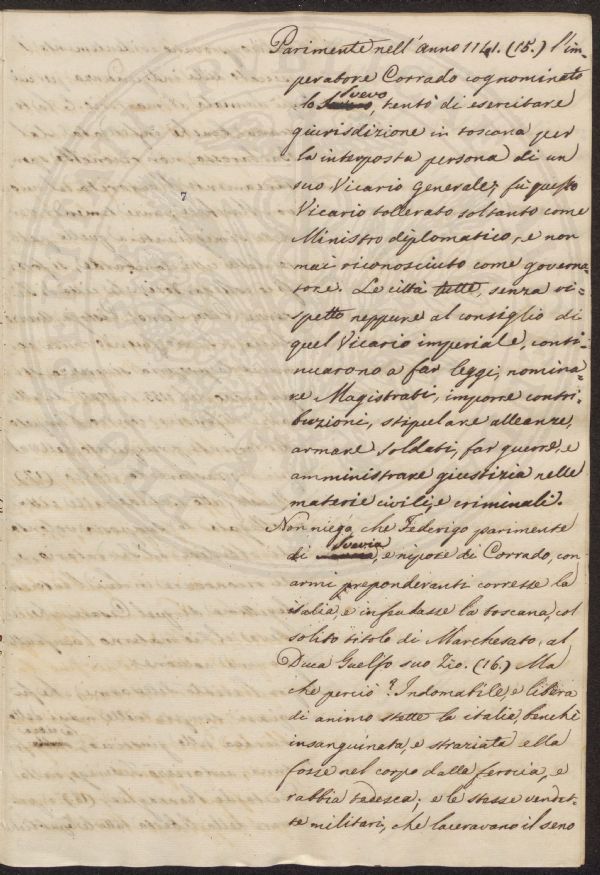 Parimente nell'anno 1141. (15.) l'im-
peratore Corrado cognominato
lo Suevo, tentò di esercitare
giurisdizione in toscana per
la interposta persona di un
suo Vicario generale; fù questo
Vicario tollerato soltanto come
Ministro diplomatico, e non
mai riconosciuto come governa-
tore. Le città tutte, senza ri-
spetto neppure al consiglio di
quel Vicario imperiale, conti-
nuarono a far leggi, nomina-
re Magistrati, imporre contri-
buzioni, stipulare alleanze,
armare soldati, far guerre, e
amministrare giustizia nelle
materie civili, e criminali.
Non niego, che Federigo parimente
di Suevia, e nipote di Corrado, con
armi preponderanti corresse la
italia, e infeudasse la toscana, col
solito titolo di Marchesato, al
Duca Guelfo suo Zio. (16.) Ma
che perciò? Indomabile, e libera
di animo stette la italia, benchè
insanguinata, e straziata ella
fosse nel corpo dalla ferocia, e
rabbia tedesca; e le stesse vendet-
te militari, che laceravano il seno